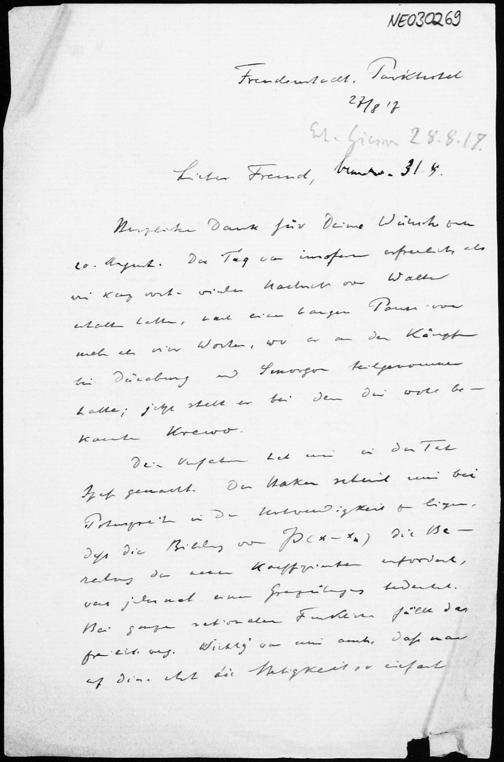 NE030269
Freudenstadt. Parkhotel
27/8 17
28.8.17.
Lieber Freund, 31.8.
Herzlichen Dank für Deine Wünsche vom
20. August. Der Tag war insofern erfreulich als
wir kurz vorher wieder Nachricht von Walter
erhalten hatten, nach einer bangen Pause von
mehr als vier Wochen, wo er an den Kämpfen
bei Dünaburg und Smorgon teilgenommen
hatte; jetzt steht er bei dem Dir wohl be-
kannten Krewo.
Dein Verfahren hat mir in der Tat
Spaß gemacht. Der Haken scheint mir bei
Potenzreihen in der Notwendigkeit zu liegen,
daß die Bildung von P(x-x₀) die Be-
rechnung der neuen Koeffizienten erfordert,
was jedesmal einen Grenzübergang bedeutet.
Bei ganzen rationalen Funktionen fällt das
freilich weg. Wichtig war mir auch, daß man
auf diese Art die Stetigkeit so einfach